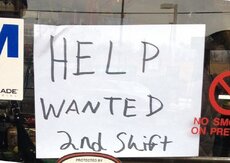 M
ADE
HELP
WANTED
2nd Shift
NO SM
ON PRE
PROTECTED BY